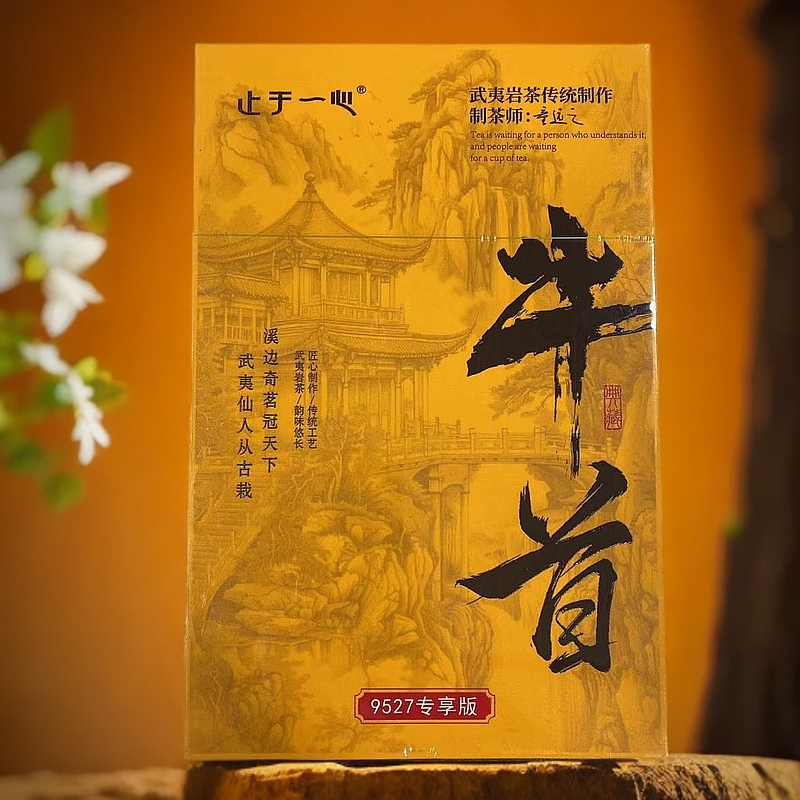 止于一心®
武夷岩茶传统制作
制茶师:
Tea is waiting for a person who understands it,
and people are waiting
for a cup of tea.
牛首
典藏
溪边奇茗冠天下
武夷仙人从古栽
匠心制作/传统工艺
武夷岩茶/韵味悠长
9527专享版